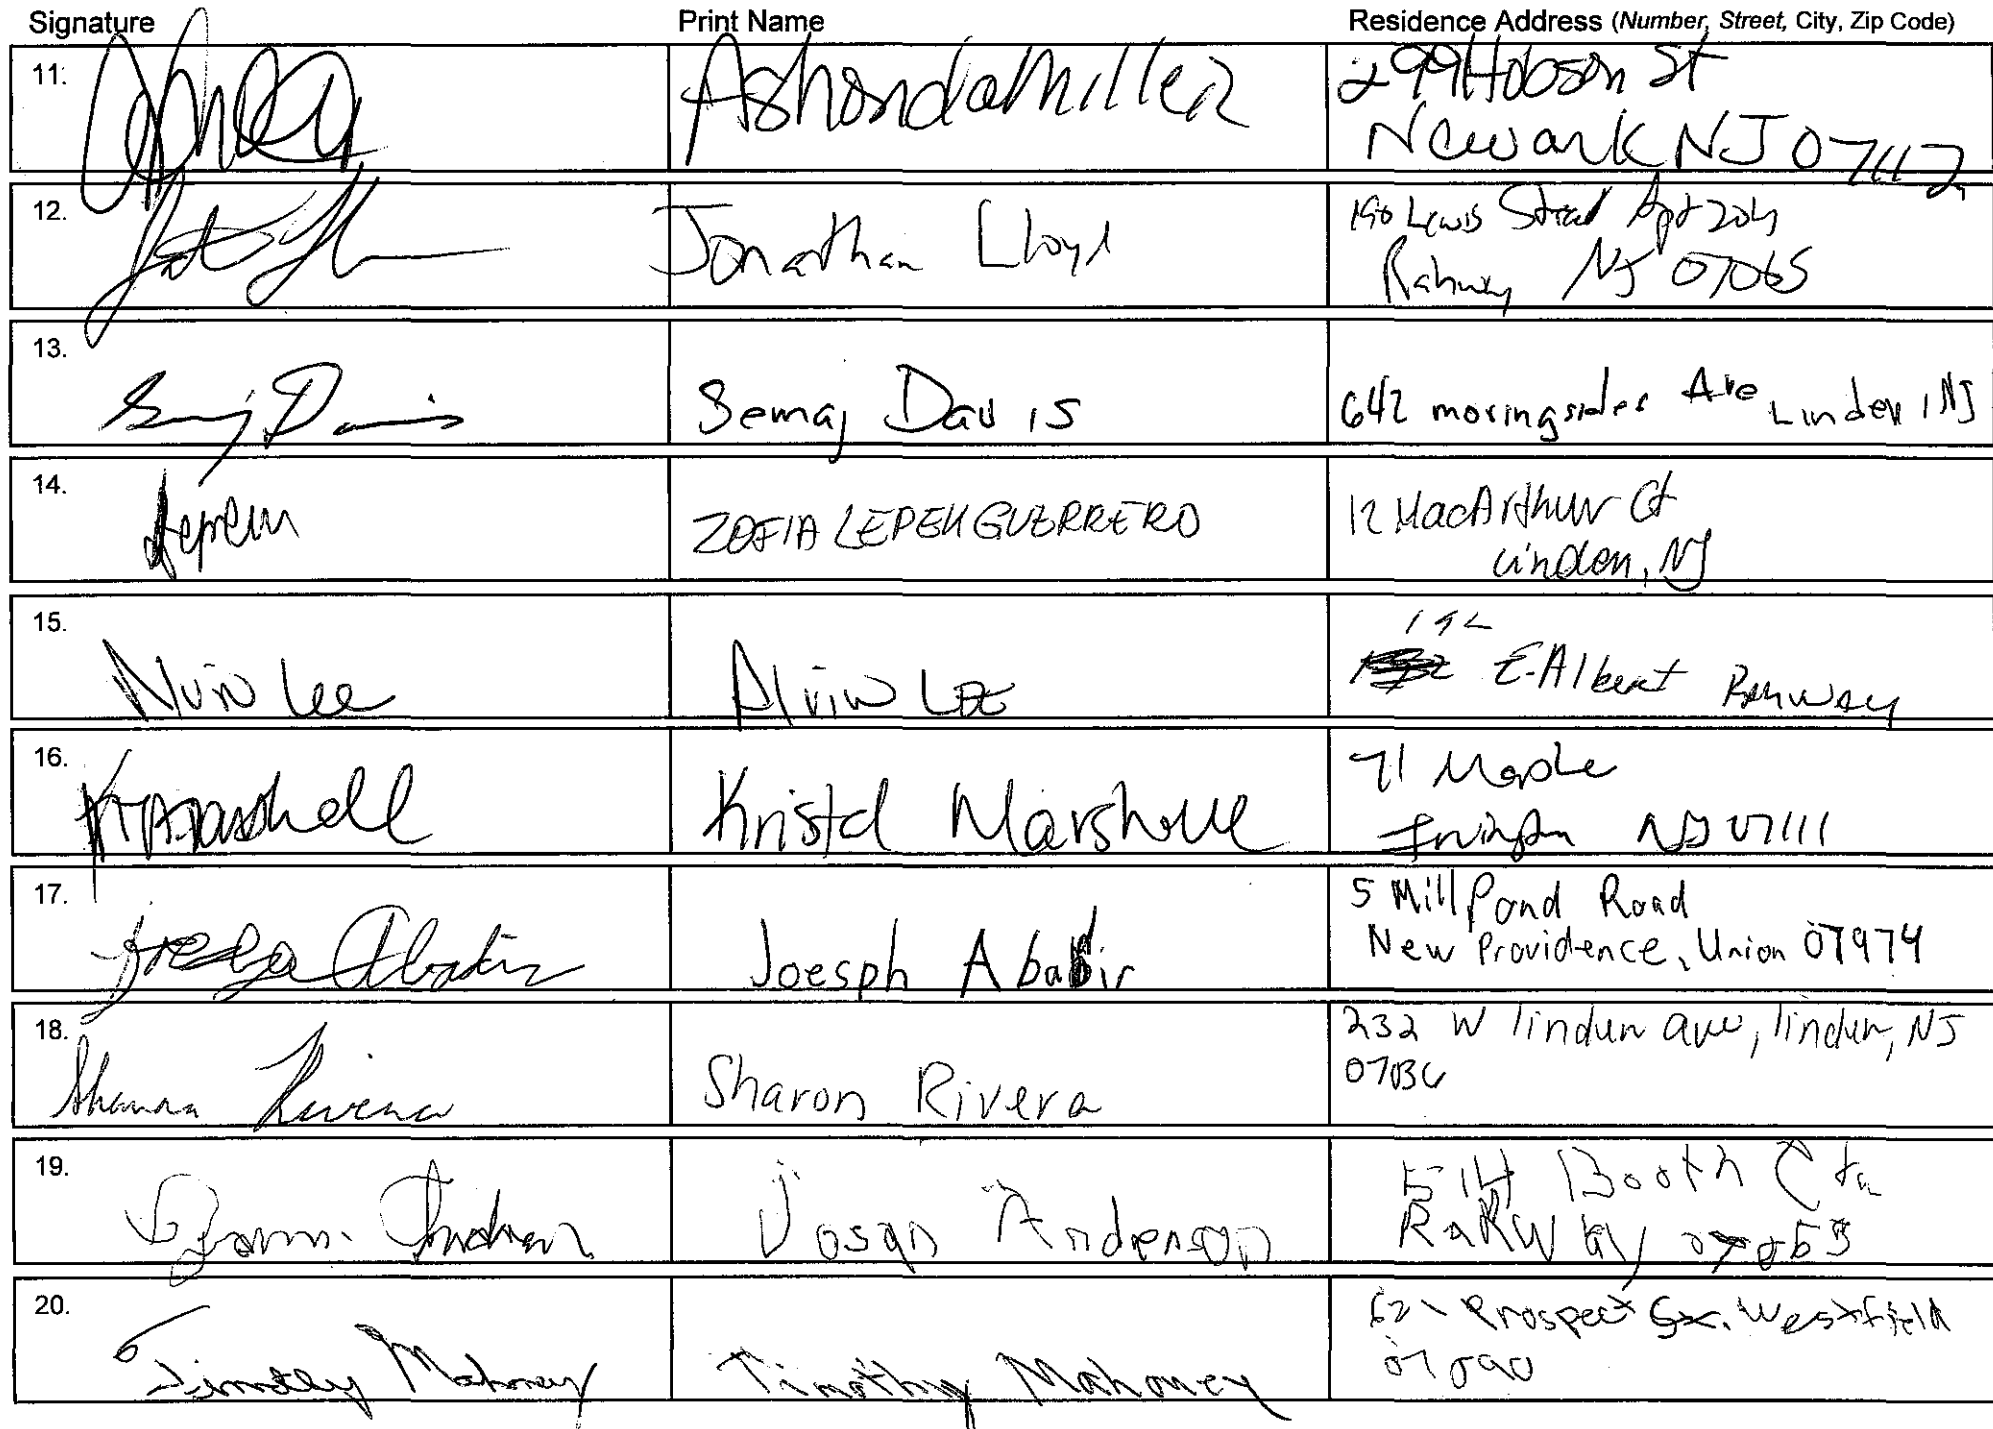 Signature Print Name Residence Address (Number, Street, City, Zip Code)
11. Ashonda Miller 299 Hobson St
Newark NJ 07112
12. Jonathan Lloyd 190 Lewis Street Apt 204
Rahway NJ 07065
13. Semaj Davis 642 morningsides Ave Linden, NJ
14. ZOFIA LEPEK GUERRERO 12 MacArthur Ct
Linden, NJ
15. Alvin Lee Alvin LEE 192
E. Albert Rahway
16. KMarshall Kristal Marshall 71 Maple
Irvington NJ 07111
17. Joesph Abadir 5 Mill Pond Road
New Providence, Union 07974
18. Sharon Rivera Sharon Rivera 232 W linden ave, linden, NJ
07036
19. Anderson 514 Booth
Rahway
20. Timothy Mahoney Timothy Mahoney Prospect St. Westfield
07090